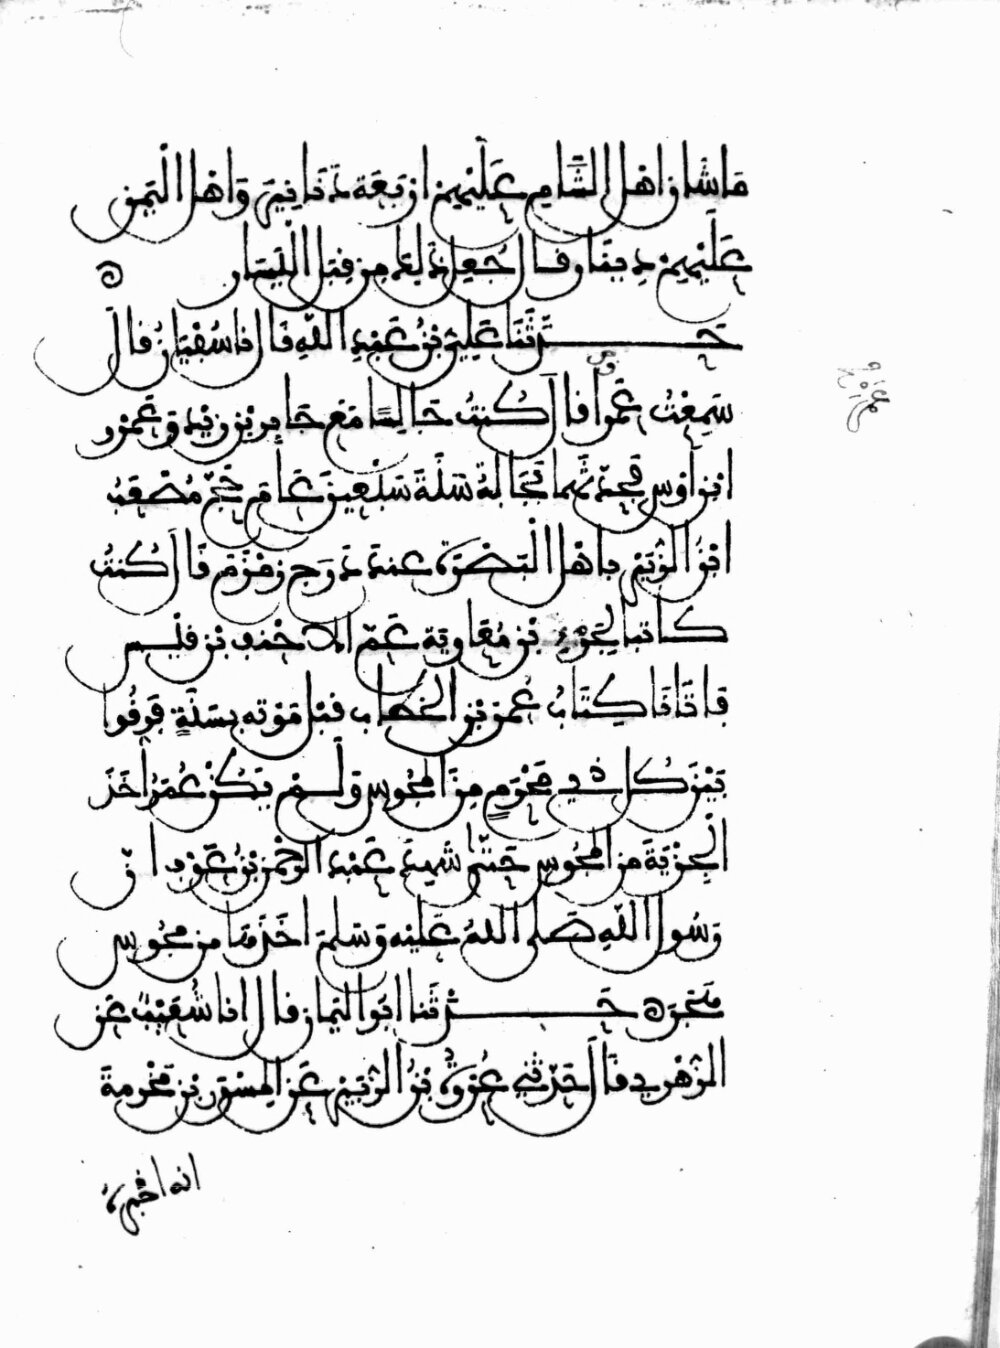 مَا شَانُ اهْلِ الشَّامِ عَلَيْهِمْ ارْبَعَة دَنَانِيرَ وَاهْلِ الْيَمَنِ
عَلَيْهِمْ دِينَار قال جُعِلَ ذَلِكَ مِن قِبَلِ الْيَسَارِ ه
حَدَّثَنَا عَلِيّ بْنُ عَبْدِ اللهِ قَالَ نا سُفْيَانُ قَالَ
سَمِعْتُ عَمْرا قال كُنتُ جَالِسًا مَعَ جَابِرِ بْنِ زَيْدٍ وَعَمْرِو
ابْنِ اوْسٍ فَحَدَّثَهما بَجَالَةُ سَنَةَ سَبْعِينَ عَامَ حَجَّ مُصْعَبُ
ابْنُ الزُّبَيْرِ بِاهْلِ الْبَصْرَةِ عِندَ دَرَجِ زَمْزَمَ قَالَ كُنتُ
كَاتبا لِجَزْءِ بْنِ مُعَاوِيَة عَمّ الاحْنَفِ بْنِ قَيْسٍ
فَاتَانَا كِتَابُ عُمَرَ بْنِ الْخَطاب قَبْلَ مَوْتِهِ بِسَنَةٍ فَرِّقُوا
بَيْنَ كُلِّ ذي مَحْرَمٍ مِنَ الْمَجُوسِ وَلَمْ يَكُنْ عُمَرُ اخَذَ
الْجِزْيَةَ مِنَ الْمَجُوسِ حَتَّى شَهِدَ عَبْدُ الرَّحْمنِ بْنُ عَوْفٍ انَّ
رَسُولَ اللهِ صَلى اللهُ عَلَيْهِ وَسَلم اخَذَهَا مِن مَجُوسِ
هَجَرَ ه حَدَّثَنا ابُو الْيَمَانِ قَالَ انا شُعَيْبٌ عَنِ
الزُّهْرِي قَالَ حَدَّثَنِي عُرْوَةُ بْنُ الزُّبَيْرِ عَنِ الْمِسْوَرِ بْنِ مَخْرَمَةَ
انه اخبره